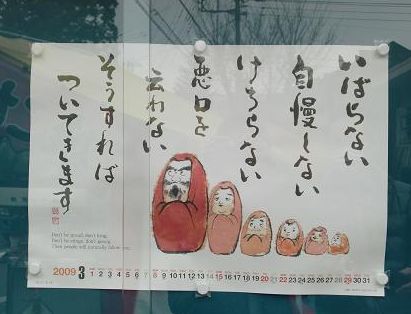 いばらない
自慢しない
けちらない
悪口を
云わない
そうすれば
ついてきます
Don't be proud, don't brag,
Don't be stingy, don't sneer,
Then people will naturally follow you.
2009 3 1 2 3 4 5 6 7 8 9 10 11 12 13 14 15 16 17 18 19 20 21 22 23 24 25 26 27 28 29 30 31